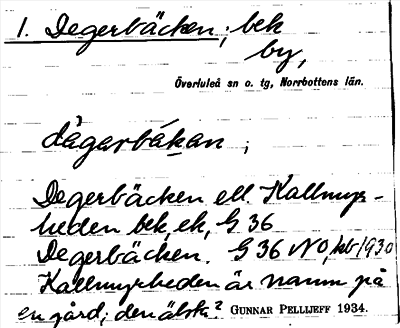 1. Degerbäcken; bek
by,
Överluleå sn o. tg, Norrbottens län.
dägarbäkan;
Degerbäcken ell. Kallmyr-
heden bek, ek, G 36
Degerbäcken. G 36 NO, kb 1930
Kallmyrheden är namn på
en gård; den älsta? GUNNAR PELLIJEFF 1934.